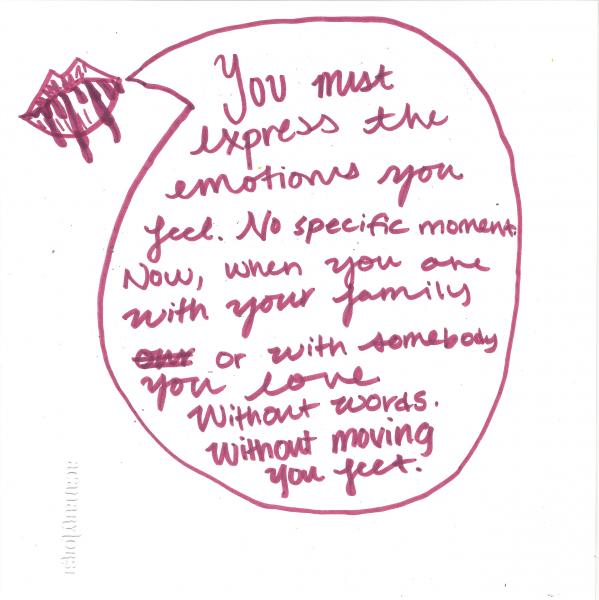 You must
express the
emotions you
feel. No specific moment.
Now, when you are
with your family
or with somebody
you love
Without words.
Without moving
you feet.
acanarytorsi